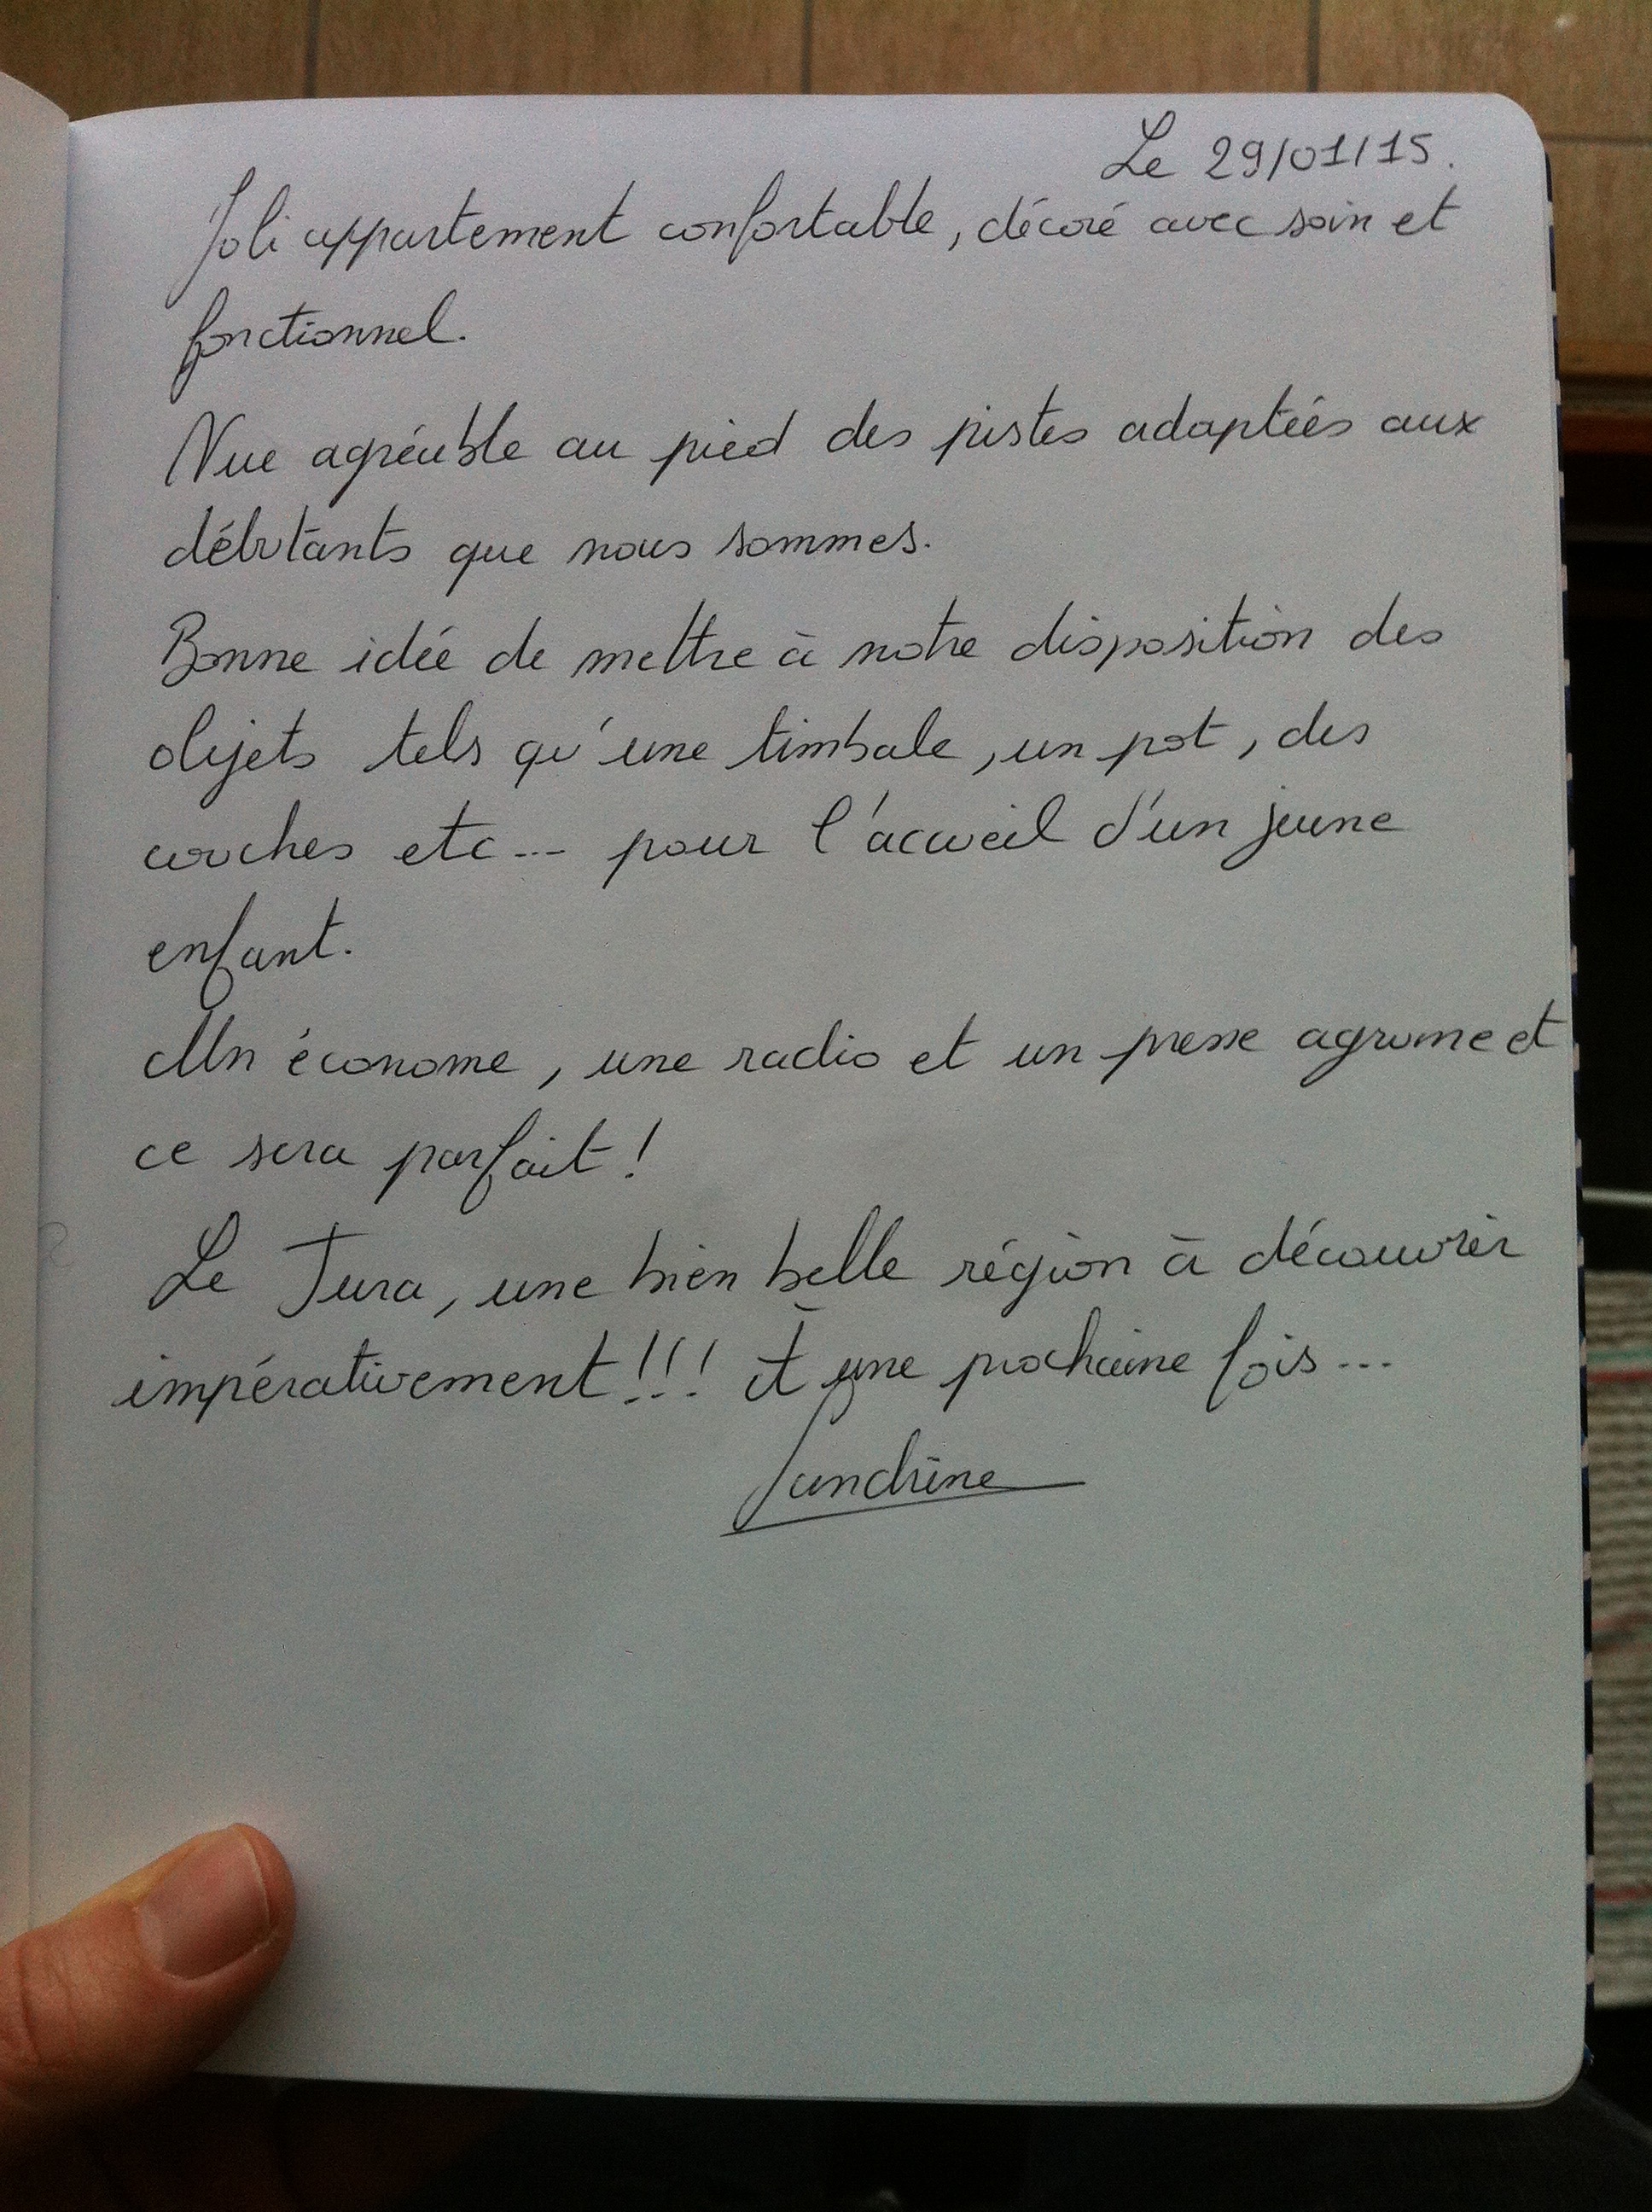 Le 29/01/15.
Joli appartement confortable, décoré avec soin et
fonctionnel.
Vue agréable au pied des pistes adaptées aux
débutants que nous sommes.
Bonne idée de mettre à notre disposition des
objets tels qu'une timbale, un pot, des
couches etc... pour l'accueil d'un jeune
enfant.
Un économe, une radio et un presse agrume et
ce sera parfait !
Le Jura, une bien belle région à découvrir
impérativement !!! À une prochaine fois...
Sandrine